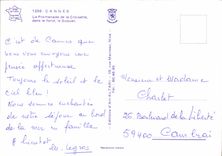 1266 CANNES
La Promenade de la Croisette,
dans le fond, le Suquet.
C'est de Cannes que
bien vous envoyons une
pensée affectueuse
Toujours le soleil et le
ciel bleu !
Nous sommes enchantés
de notre séjour au bord
de la mer en famille
à bientôt
les Legros
Monsieur et Madame
Charlet
26 Boulevard de la Liberté
59400 Cambrai